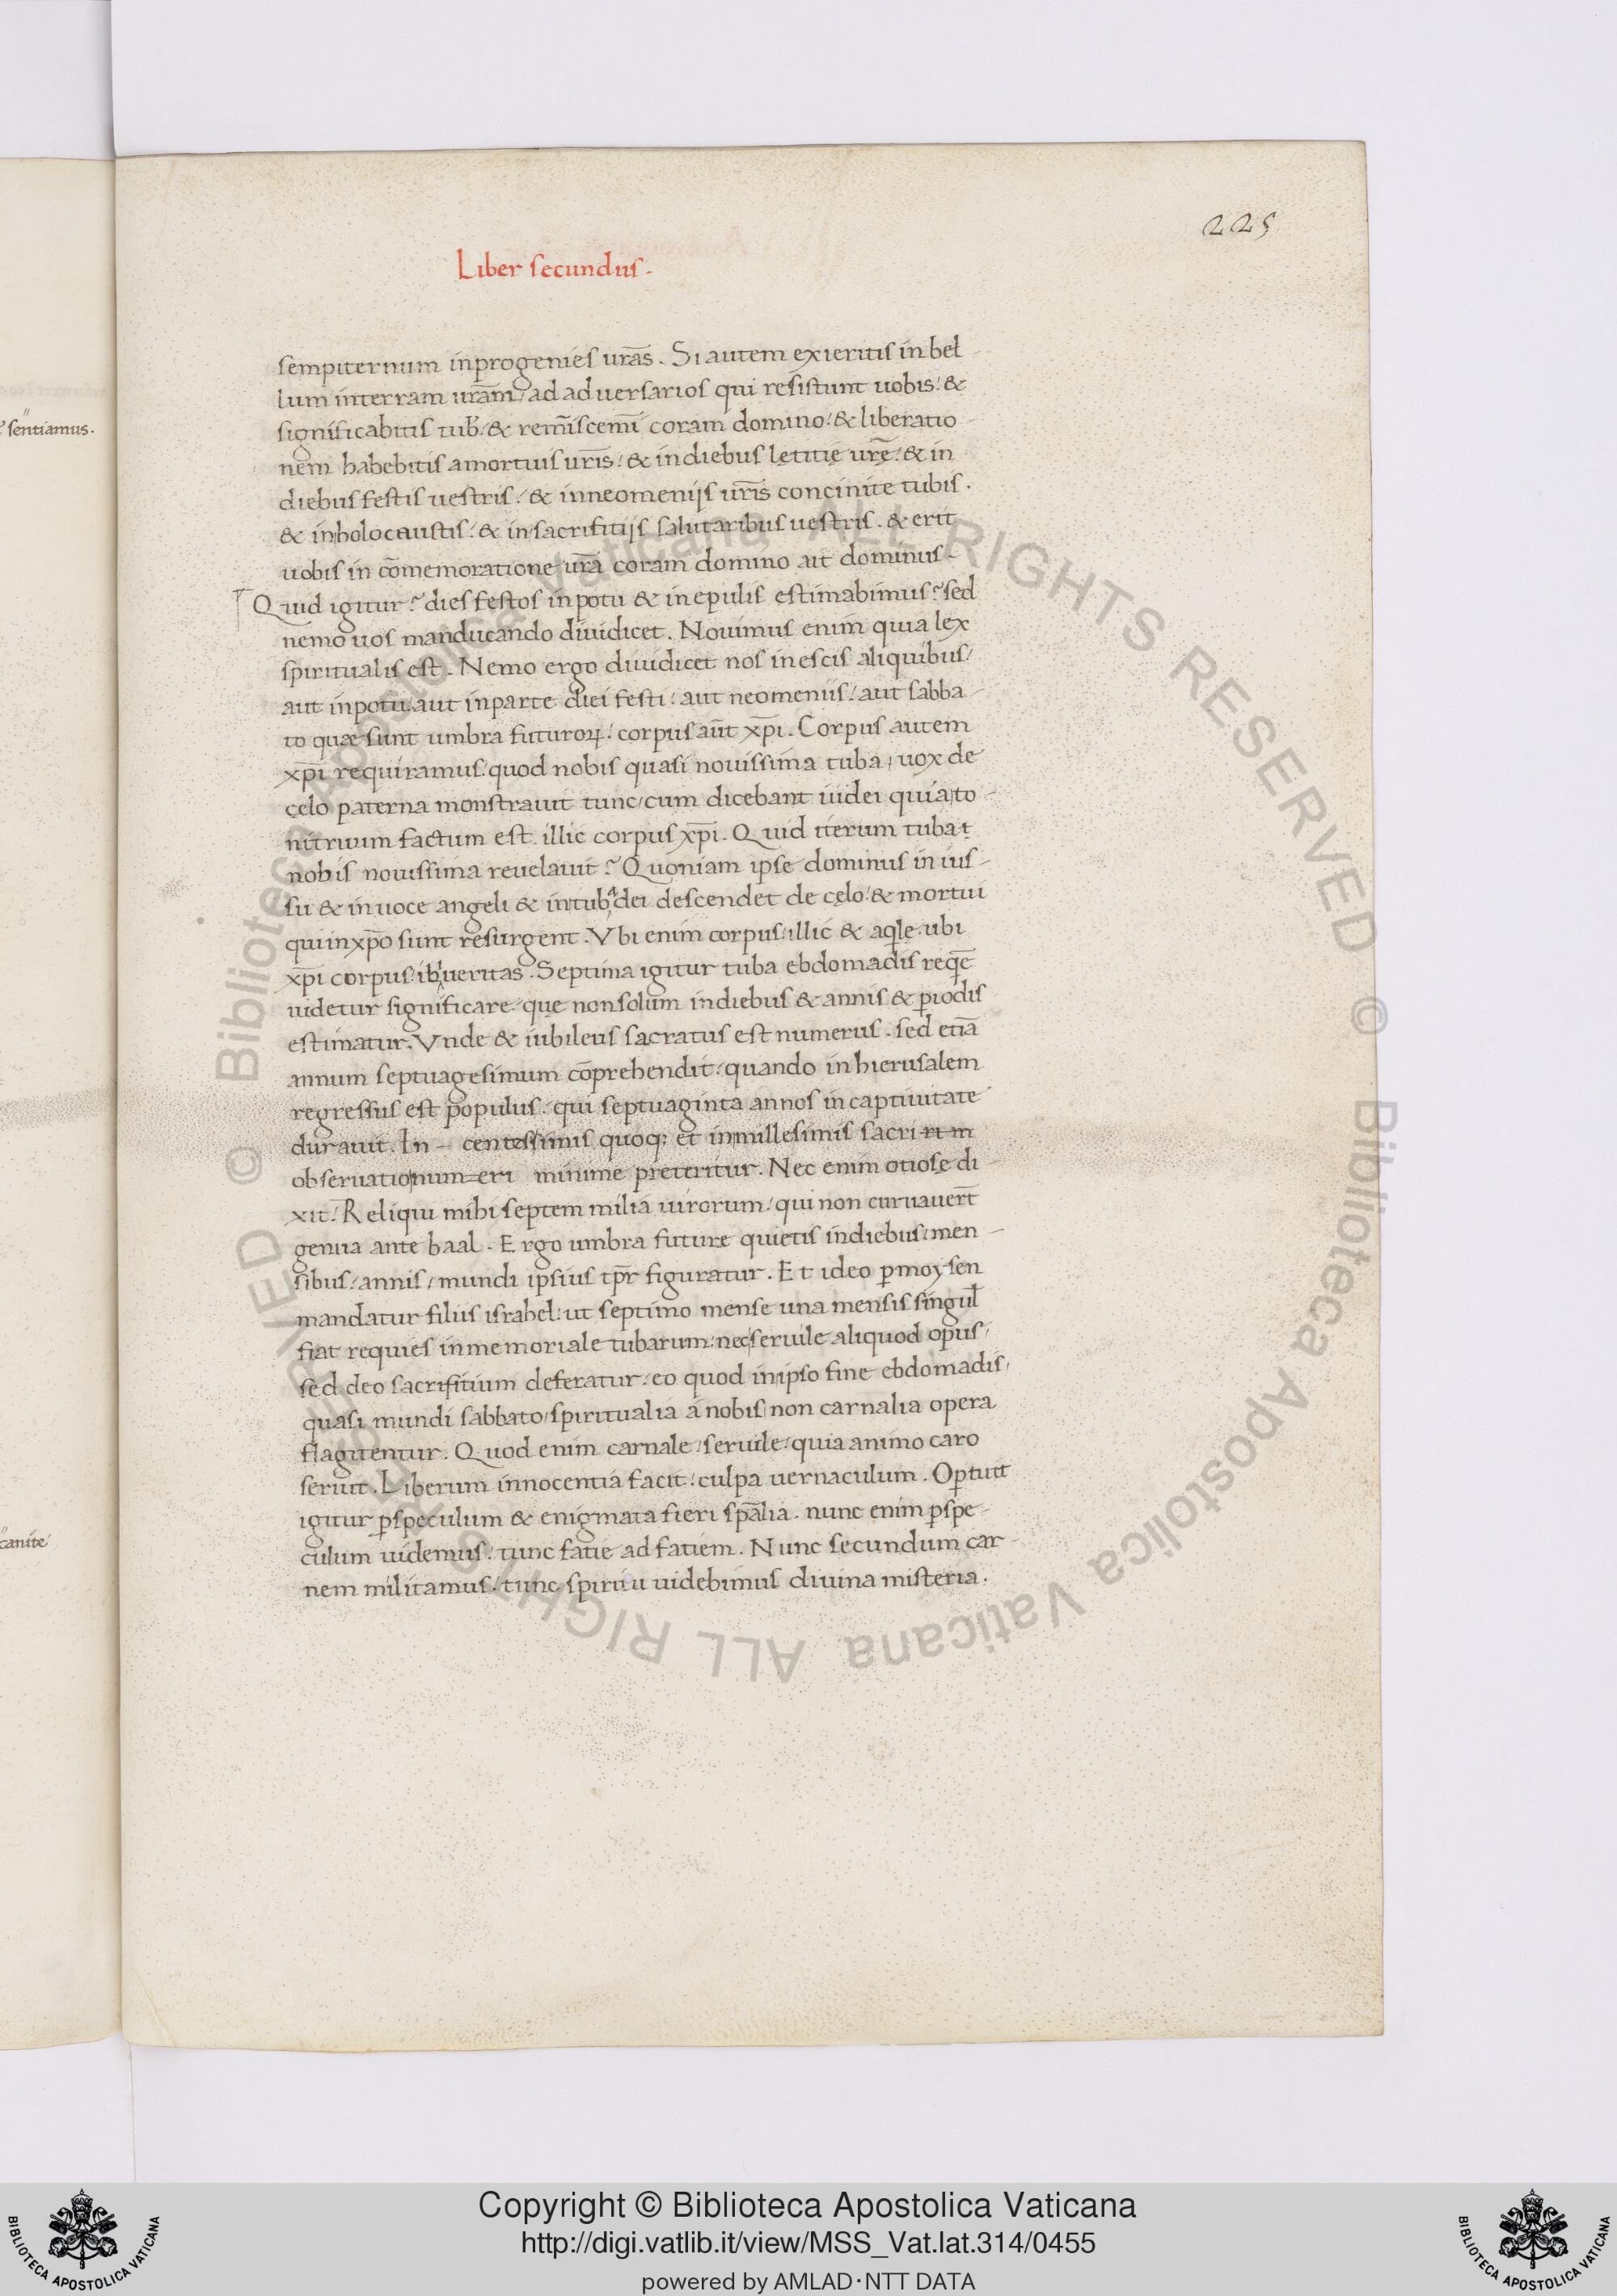 225
Liber secundus.
sempiternum in progenies ur̄as. Si autem exieritis in bel-
lum in terram ur̄am / ad aduersarios qui resistunt uobis / &
significabitis tub̄ / & rem̄iscemī coram domino / & liberatio-
nem habebitis a mortuis ur̄is / & in diebus lętitię ur̄ę / & in
diebus festis uestris / & in neomenijs ur̄is concinite tubis.
& in holocaustis / & in sacrifitijs salutaribus uestris. & erit
uobis in cōmemoratione ur̄a coram domino ait dominus-
Quid igitur? dies festos in potu & in epulis estimabimus? sed
nemo uos manducando diuidicet. Nouimus enim quia lex
spiritualis est. Nemo ergo diuidicet nos in escis aliquibus /
aut in potu / aut in parte diei festi / aut neomeniis / aut sabba-
to quæ sunt umbra futuroꝝ / corpus aūt xp̄i. Corpus autem
xp̄i requiramus / quod nobis quasi nouissima tuba / uox de
cęlo paterna monstrauit tunc / cum dicebant iudei quia to-
nitruum factum est. illic corpus xp̄i. Quid iterum tuba
nobis nouissima reuelauit? Quoniam ipse dominus in ius-
su & in uoce angeli & in tuba dei descendet de cęlo / & mortui
qui in xp̄o sunt resurgent. Vbi enim corpus / illic & aq̄lę. ubi
xp̄i corpus / ibi ueritas. Septima igitur tuba ebdomadis req̄ē
uidetur significare. quę non solum in diebus & annis & ꝑiodis
estimatur. Vnde & iubileus sacratus est numerus. sed etiā
annum septuagesimum cōprehendit / quando in hierusalem
regressus est populus / qui septuaginta annos in captiuitate
durauit. In - centessimis quoq; et in millesimis sacri
obseruationum=eri minime preteritur. Nec enim otiosę di-
xit / Reliqui mihi septem milia uirorum / qui non curuauer̄t
genua ante baal. Ergo umbra futurę quietis in diebus / men-
sibus / annis / mundi ipsius tp̄r figuratur. Et ideo ꝑ moysen
mandatur filiis israhel / ut septimo mense una mensis singul̄
fiat requies in memoriale tubarum / nec seruile aliquod opus /
sed deo sacrifitium deferatur. eo quod in ipso fine ebdomadis /
quasi mundi sabbato / spiritualia á nobis non carnalia opera
flagitentur. Quod enim carnale / seruile / quia animo caro
seruit. Liberum innocentia facit / culpa uernaculum. Oꝑtuit
igitur ꝑ speculum & enigmata fieri sp̄alia. nunc enim ꝑ spe-
culum uidemus / tunc fatie ad fatiem. Nunc secundum car-
nem militamus / tunc spiritu uidebimus diuina misteria.
sentiamus.
canite
Copyright © Biblioteca Apostolica Vaticana
http://digi.vatlib.it/view/MSS_Vat.lat.314/0455
powered by AMLAD·NTT DATA
BIBLIOTECA APOSTOLICA VATICANA
BIBLIOTECA APOSTOLICA VATICANA
© Biblioteca Apostolica Vaticana ALL RIGHTS RESERVED
© Biblioteca Apostolica Vaticana ALL RIGHTS RESERVED